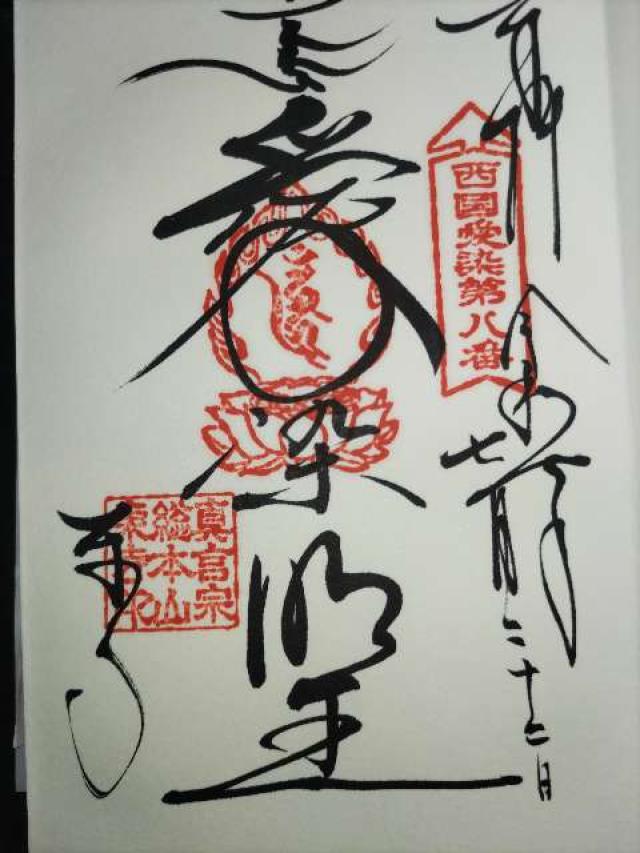 奉拝
西國愛染第八番
令和
七月二十二日
愛染明王
真言宗
総本山
東寺印
東寺